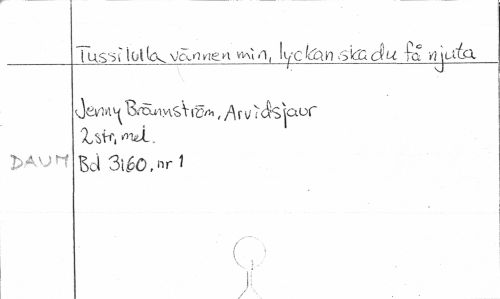 Tussilulla vännen min, lyckan ska du få njuta
Jenny Brännström, Arvidsjaur
2 str, mel.
DAUM Bd 3160, nr 1